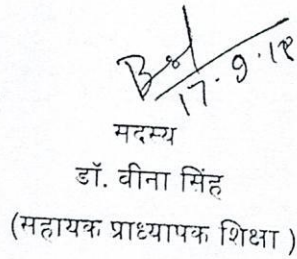 17.9.18
मदस्य
डॉ. वीना सिंह
(सहायक प्राध्यापक शिक्षा )